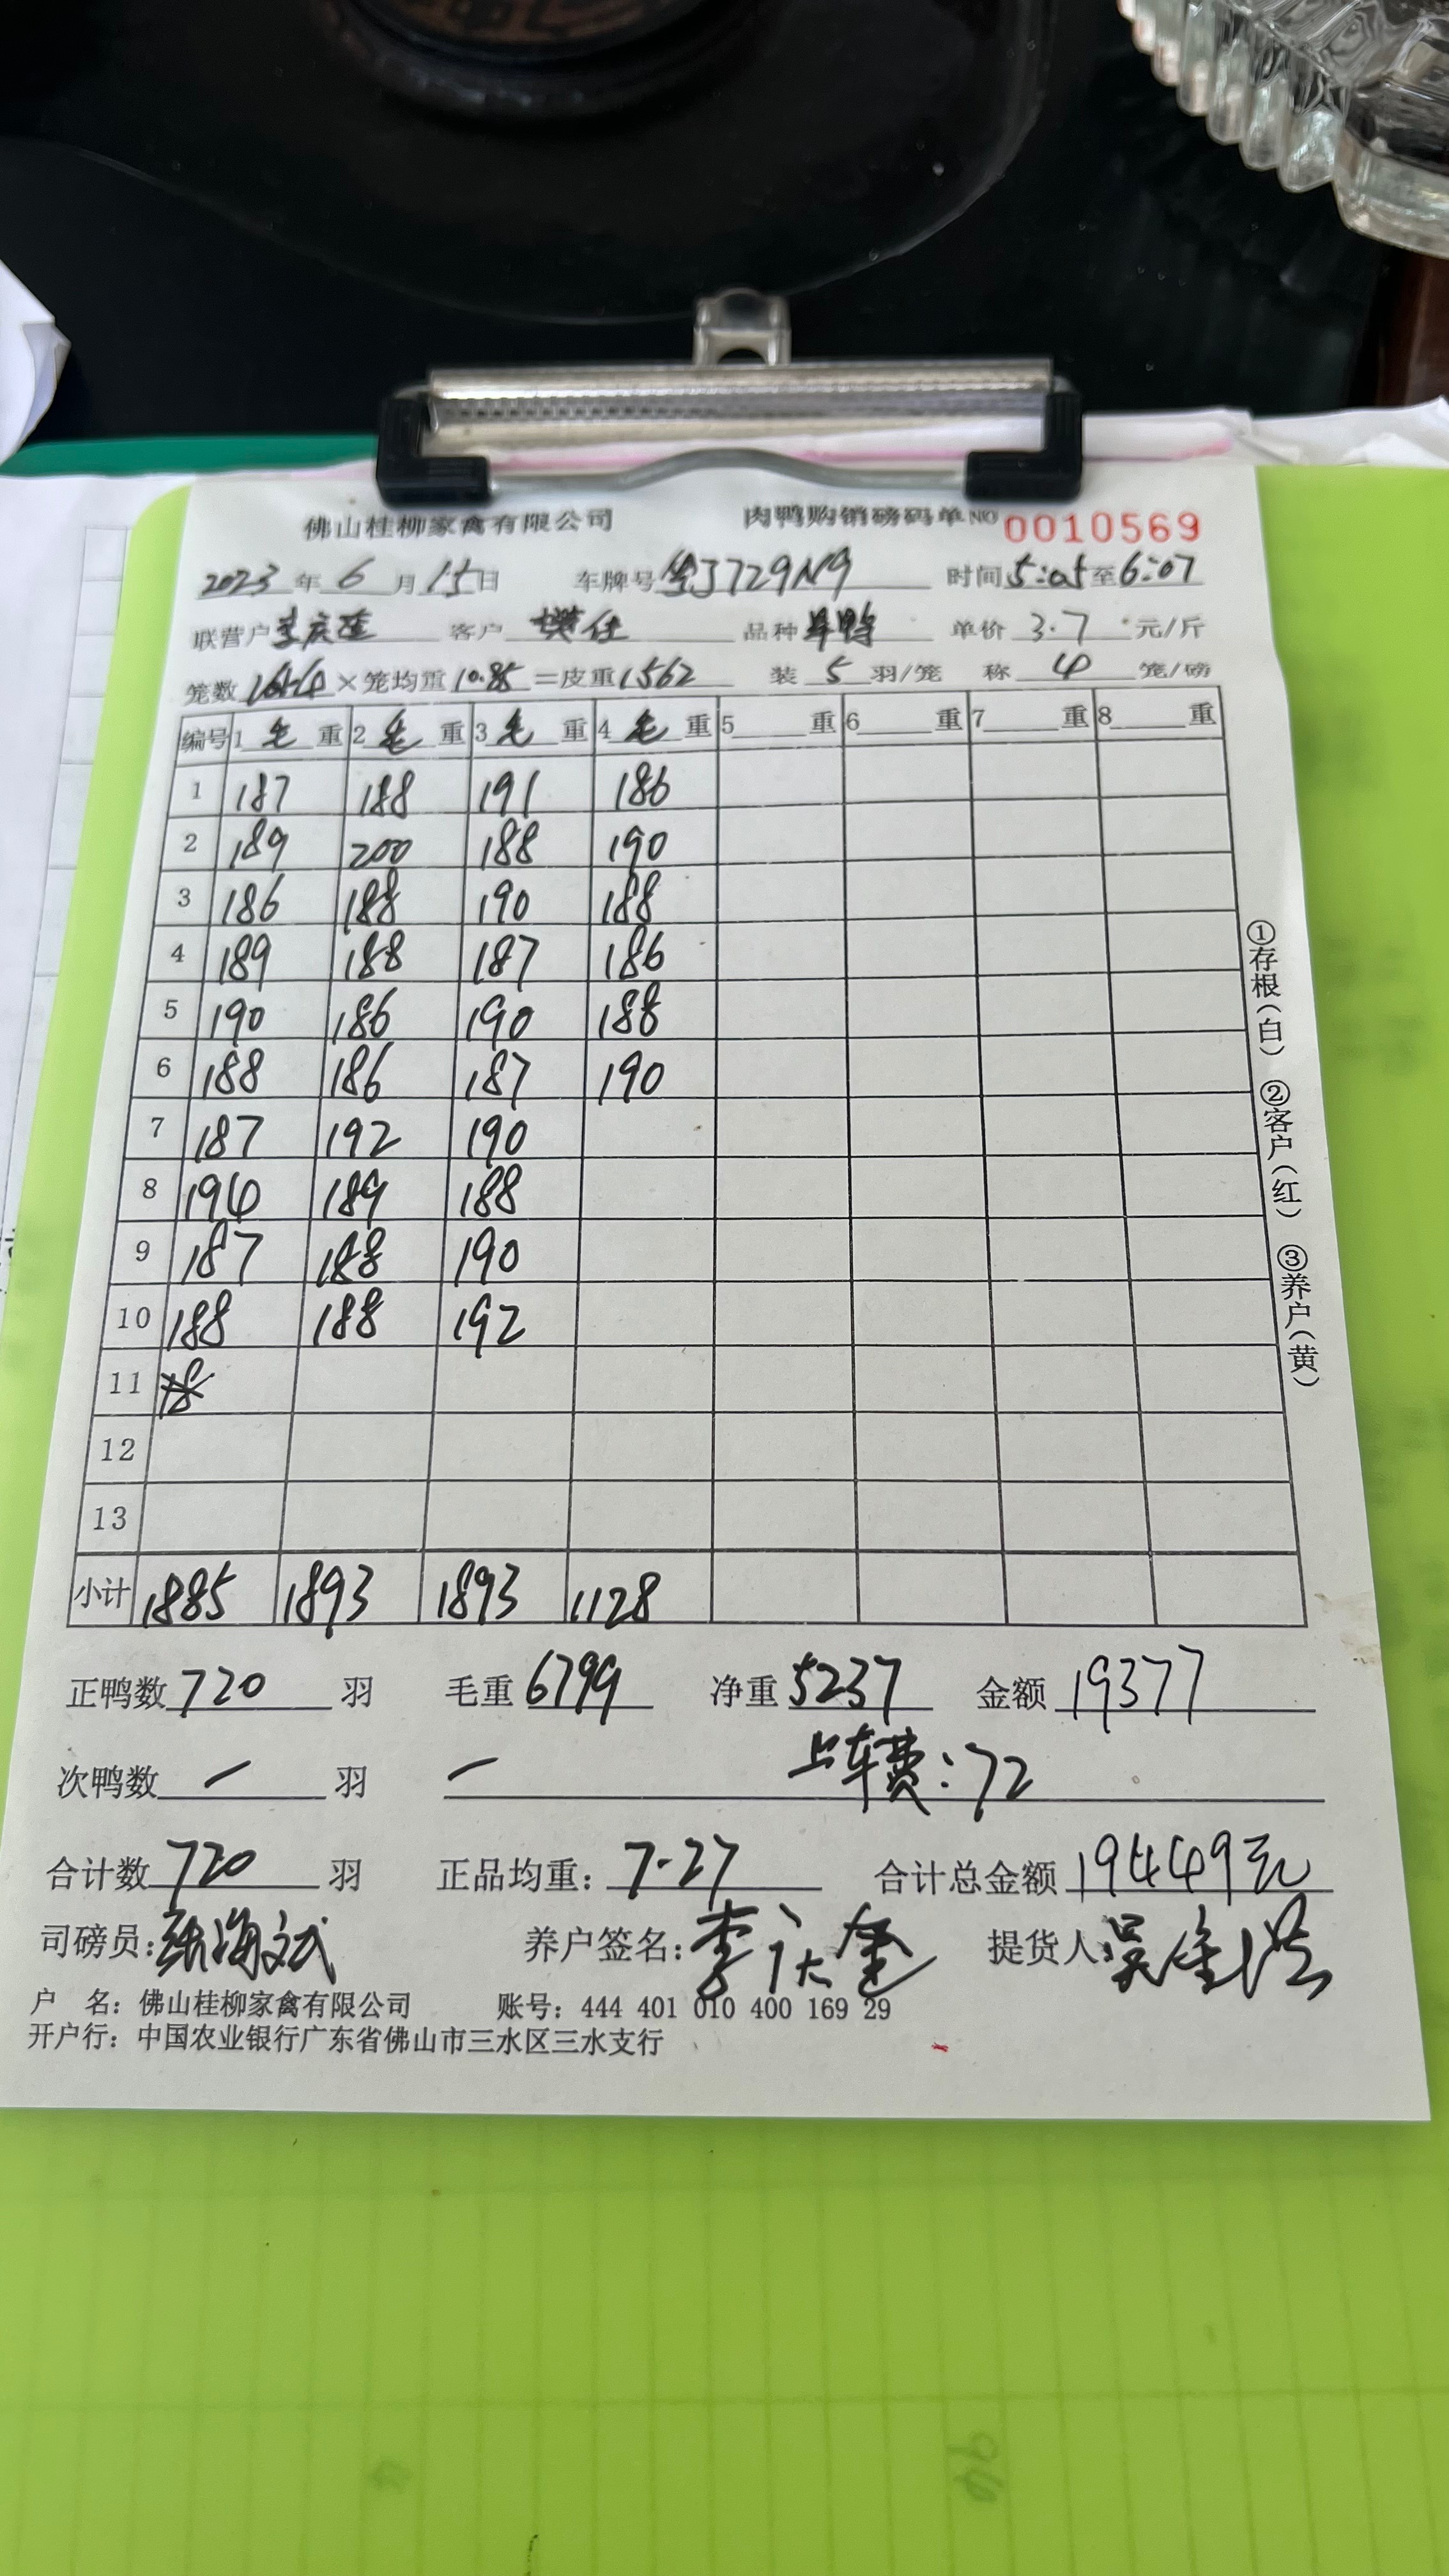 佛山桂柳家禽有限公司 肉鸭购销磅码单 NO 0010569
2023 年 6 月 15 日 车牌号 粤J729N9 时间 5:05 至 6:07
联营户 李庆莲 客户 品种 单价 3.7 元/斤
笼数 144 × 笼均重 10.85 = 皮重 1562 装 5 羽/笼 称 4 笼/磅
编号 1 毛 重 2 毛 重 3 毛 重 4 毛 重 5 重 6 重 7 重 8 重
1 187 188 191 186
2 189 200 188 190
3 186 188 190 188
4 189 188 187 186
5 190 186 190 188
6 188 186 187 190
7 187 192 190
8 194 189 188
9 187 188 190
10 188 188 192
11
12
13
小计 1885 1893 1893 1128
正鸭数 720 羽 毛重 6799 净重 5237 金额 19377
次鸭数 — 羽 — 上车费:72
合计数 720 羽 正品均重: 7.27 合计总金额 19449元
司磅员: 养户签名: 提货人:
户 名: 佛山桂柳家禽有限公司 账号: 444 401 010 400 169 29
开户行: 中国农业银行广东省佛山市三水区三水支行
①存根(白) ②客户(红) ③养户(黄)